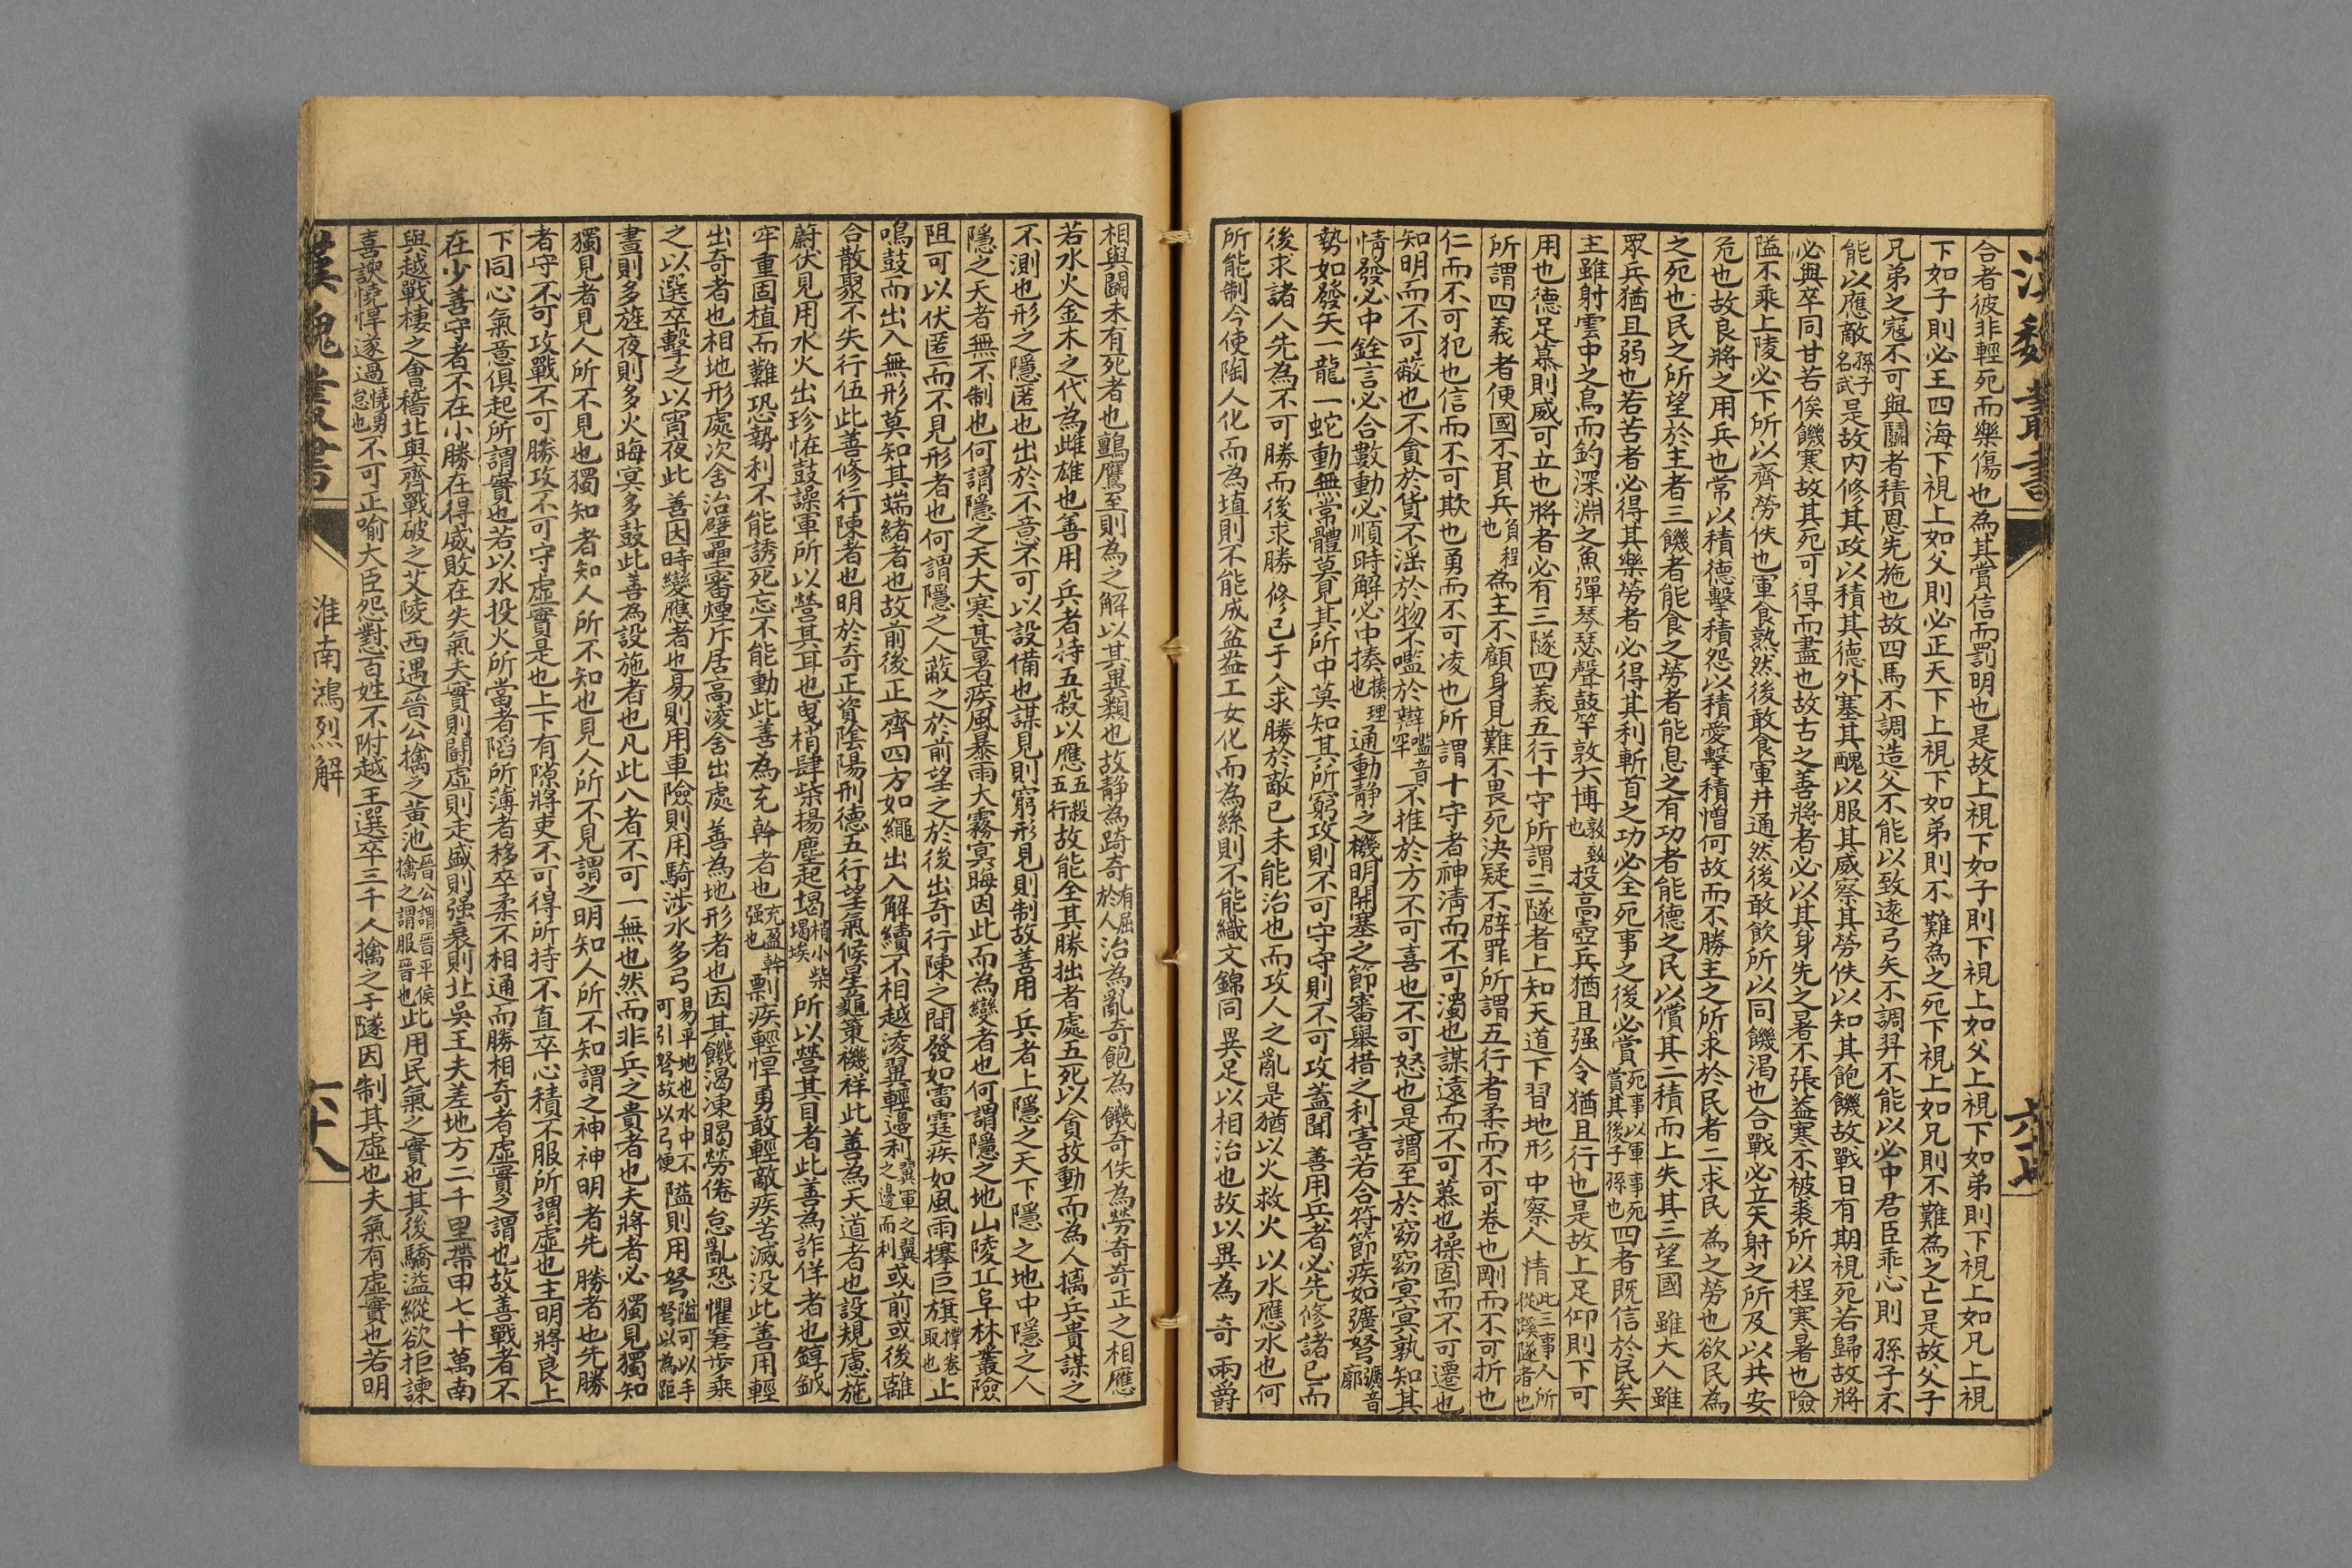 漢魏叢書
六十七
合者彼非輕死而樂傷也為其賞信而罰明也是故上視下如子則下視上如父上視下如弟則下視上如兄上視
下如子則必王四海下視上如父則必正天下上視下如弟則不難為之死下視上如兄則不難為之亡是故父子
兄弟之寇不可與鬭者積恩先施也故四馬不調造父不能以致遠弓矢不調羿不能以必中君臣乖心則孫子不
能以應敵孫子名武是故內修其政以積其德外塞其醜以服其威察其勞佚以知其飽饑故戰日有期視死若歸故將
必與卒同甘苦俟饑寒故其死可得而盡也故古之善將者必以其身先之暑不張蓋寒不被裘所以程寒暑也險
隘不乘上陵必下所以齊勞佚也軍食熟然後敢食軍井通然後敢飲所以同饑渴也合戰必立矢射之所及以共安
危也故良將之用兵也常以積德擊積怨以積愛擊積憎何故而不勝主之所求於民者二求民為之勞也欲民為
之死也民之所望於主者三饑者能食之勞者能息之有功者能德之民以償其二積而上失其三望國雖大人雖
眾兵猶且弱也若苦者必得其樂勞者必得其利斬首之功必全死事之後必賞死事以軍事死賞其後子孫也四者既信於民矣
主雖射雲中之鳥而釣深淵之魚彈琴瑟聲鼓竽敦六博敦致也投高壺兵猶且强令猶且行也是故上足仰則下可
用也德足慕則威可立也將者必有三隧四義五行十守所謂三隧者上知天道下習地形中察人情此三事人所從蹊隧者也
所謂四義者便國不負兵負程也為主不顧身見難不畏死決疑不辟罪所謂五行者柔而不可卷也剛而不可折也
仁而不可犯也信而不可欺也勇而不可凌也所謂十守者神清而不可濁也謀遠而不可慕也操固而不可遷也
知明而不可蔽也不貪於貨不淫於物不嚂於辯嚂音罕不推於方不可喜也不可怒也是謂至於窈窈冥冥孰知其
情發必中銓言必合數動必順時解必中揍揍理也通動靜之機明開塞之節審舉措之利害若合符節疾如彍弩彍音廓
勢如發矢一龍一蛇動無常體莫見其所中莫知其所窮攻則不可守守則不可攻蓋聞善用兵者必先修諸己而
後求諸人先為不可勝而後求勝修己于人求勝於敵己未能治也而攻人之亂是猶以火救火以水應水也何
所能制今使陶人化而為埴則不能成盆盎工女化而為絲則不能織文錦同異足以相治也故以異為奇兩爵
相與鬭未有死者也鸇鷹至則為之解以其異類也故靜為踦奇有屈於人治為亂奇飽為饑奇佚為勞奇奇正之相應
若水火金木之代為雌雄也善用兵者持五殺以應五殺五行故能全其勝拙者處五死以貪故動而為人擒兵貴謀之
不測也形之隱匿也出於不意不可以設備也謀見則窮形見則制故善用兵者上隱之天下隱之地中隱之人
隱之天者無不制也何謂隱之天大寒甚暑疾風暴雨大霧冥晦因此而為變者也何謂隱之地山陵丘阜林叢險
阻可以伏匿而不見形者也何謂隱之人蔽之於前望之於後出奇行陳之間發如雷霆疾如風雨搴巨旗搴卷取也止
鳴鼓而出入無形莫知其端緒者也故前後正齊四方如繩出入解續不相越淩翼輕邊利翼軍之翼之邊而利或前或後離
合散聚不失行伍此善修行陳者也明於奇正資陰陽刑德五行望氣候星龜策禨祥此善為天道者也設規慮施
蔚伏見用水火出珍怪鼓譟軍所以營其耳也曳梢肆柴揚塵起堨梢小柴堨埃所以營其目者此善為詐佯者也錞鉞
牢重固植而難恐勢利不能誘死亡不能動此善為充幹者也充盈幹强也剽疾輕悍勇敢輕敵疾苦滅沒此善用輕
出奇者也相地形處次舍治壁壘審煙斥居高淩舍出處善為地形者也因其饑渴凍暍勞倦怠亂恐懼窘步乘
之以選卒擊之以宵夜此善因時變應者也易則用車險則用騎涉水多弓易平地也水中不可引弩故以弓便隘則用弩隘可以手弩以為距
晝則多旌夜則多火晦冥多鼓此善為設施者也凡此八者不可一無也然而非兵之貴者也夫將者必獨見獨知
獨見者見人所不見也獨知者知人所不知也見人所不見謂之明知人所不知謂之神神明者先勝者也先勝
者守不可攻戰不可勝攻不可守虛實是也上下有隙將吏不可得所持不直卒心積不服所謂虛也主明將良上
下同心氣意俱起所謂實也若以水投火所當者陷所薄者移卒柔不相通而勝相奇者虛實之謂也故善戰者不
在少善守者不在小勝在得威敗在失氣夫實則鬭虛則走盛則强衰則北吳王夫差地方二千里帶甲七十萬南
與越戰棲之會稽北與齊戰破之艾陵西遇晉公擒之黃池晉公謂晉平侯擒之謂服晉也此用民氣之實也其後驕溢縱欲拒諫
喜諛憢悍遂過憢勇怠也不可正喻大臣怨懟百姓不附越王選卒三千人擒之于隧因制其虛也夫氣有虛實也若明
漢魏叢書
淮南鴻烈解
六十八